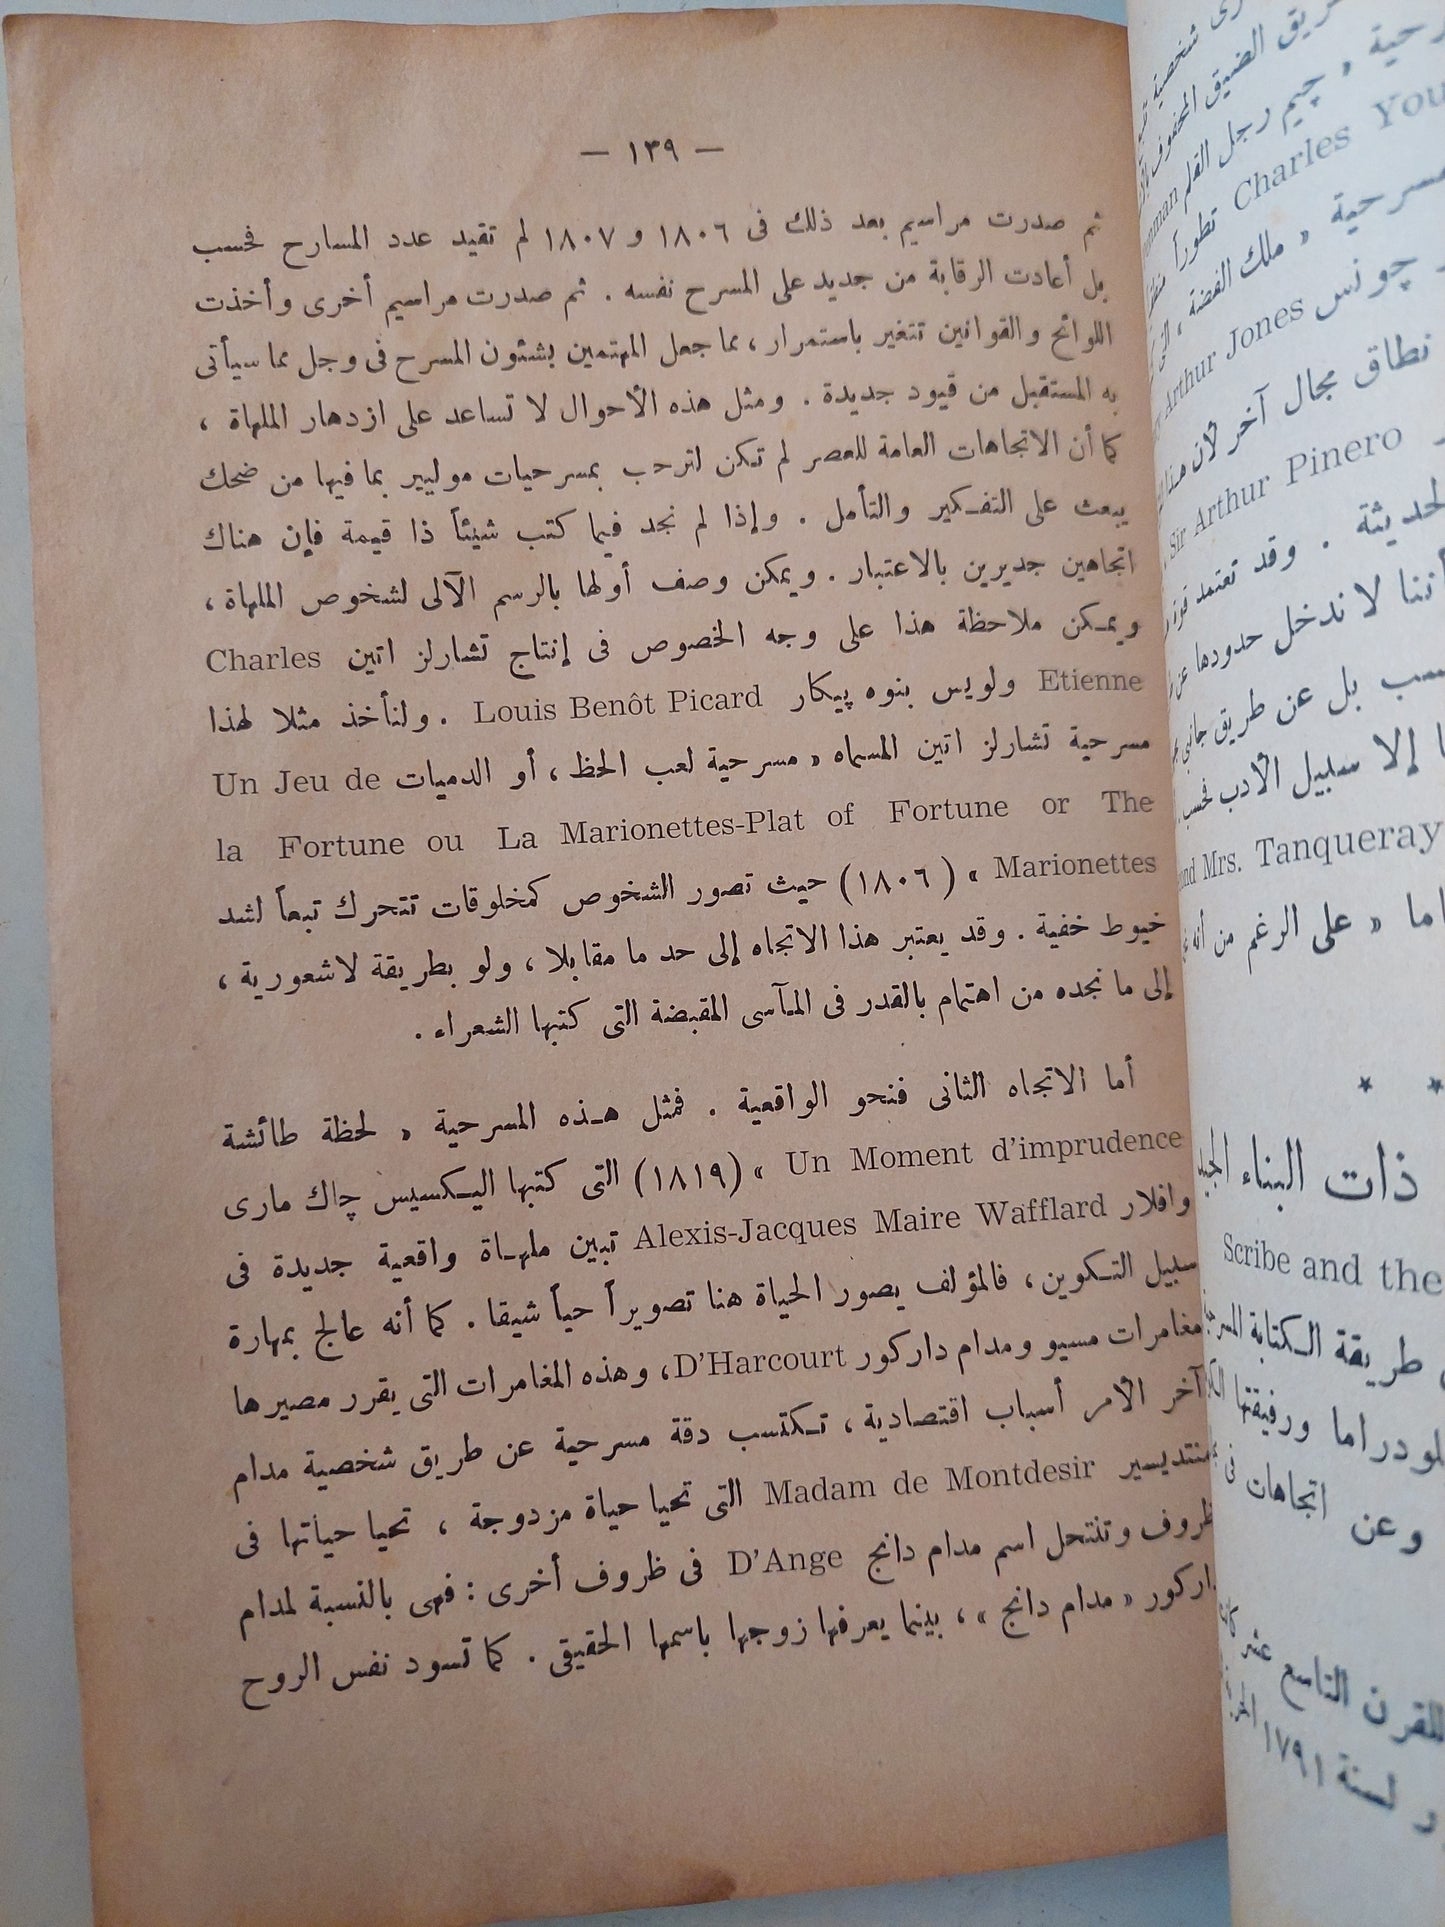 — ١٣٩ —
ثم صدرت مراسيم بعد ذلك فى ١٨٠٦ و ١٨٠٧ لم تقيد عدد المسارح فحسب
بل أعادت الرقابة من جديد على المسرح نفسه . ثم صدرت مراسيم أخرى وأخذت
اللوائح والقوانين تتغير باستمرار ، مما جعل المهتمين بشئون المسرح فى وجل مما سيأتى
به المستقبل من قيود جديدة . ومثل هذه الأحوال لا تساعد على ازدهار الملهاة ،
كما أن الاتجاهات العامة للعصر لم تكن لترحب بمسرحيات موليير بما فيها من ضحك
يبعث على التفكير والتأمل . وإذا لم نجد فيما كتب شيئاً ذا قيمة فإن هناك
اتجاهين جديرين بالاعتبار . ويمكن وصف أولها بالرسم الآلى لشخوص الملهاة ،
ويمكن ملاحظة هذا على وجه الخصوص فى إنتاج تشارلز اتين Charles
Etienne ولويس بنوه پيكار Louis Benôt Picard . ولنأخذ مثلا لهذا
مسرحية تشارلز اتين المسماه « مسرحية لعب الحظ ، أو الدميات Un Jeu de
la Fortune ou La Marionettes-Plat of Fortune or The
Marionettes » (١٨٠٦) حيث تصور الشخوص كمخلوقات تتحرك تبعاً لشد
خيوط خفية . وقد يعتبر هذا الاتجاه إلى حد ما مقابلا ، ولو بطريقة لاشعورية ،
إلى ما نجده من اهتمام بالقدر فى المآسى المقبضة التى كتبها الشعراء .
أما الاتجاه الثانى فنحو الواقعية . فمثل هذه المسرحية « لحظة طائشة
Un Moment d’imprudence » (١٨١٩) التى كتبها اليكسيس چاك مارى
وافلار Alexis-Jacques Maire Wafflard تبين ملهاة واقعية جديدة فى
سبيل التكوين ، فالمؤلف يصور الحياة هنا تصويراً حياً شيقا . كما أنه عالج بمهارة
مغامرات مسيو ومدام داركور D’Harcourt ، وهذه المغامرات التى يقرر مصيرها
آخر الأمر أسباب اقتصادية ، تكتسب دقة مسرحية عن طريق شخصية مدام
منتديسير Madam de Montdesir التى تحيا حياة مزدوجة ، تحيا حياتها فى
ظروف وتنتحل اسم مدام دانج D’Ange فى ظروف أخرى : فهى بالنسبة لمدام
داركور « مدام دانج » ، بينما يعرفها زوجها باسمها الحقيقى . كما تسود نفس الروح
شخصية
يق الضيق المحفوف
« چيم رجل القلم
Charles تطوراً
مسرحية « ملك الفضة ،
چونس Arthur Jones
نطاق مجال آخر لأن
Sir Arthur Pinero
لحديثة . وقد تعتمد قوة
أننا لا ندخل حدودها عن
بل عن طريق جانبى
إلا سبيل الأدب فحسب
Mrs. Tanqueray
« على الرغم من أنه
* *
ذات البناء
Scribe and the
طريقة الكتابة
ورفيقتها
وعن اتجاهات فى
للقرن التاسع عشر
لسنة ١٧٩١